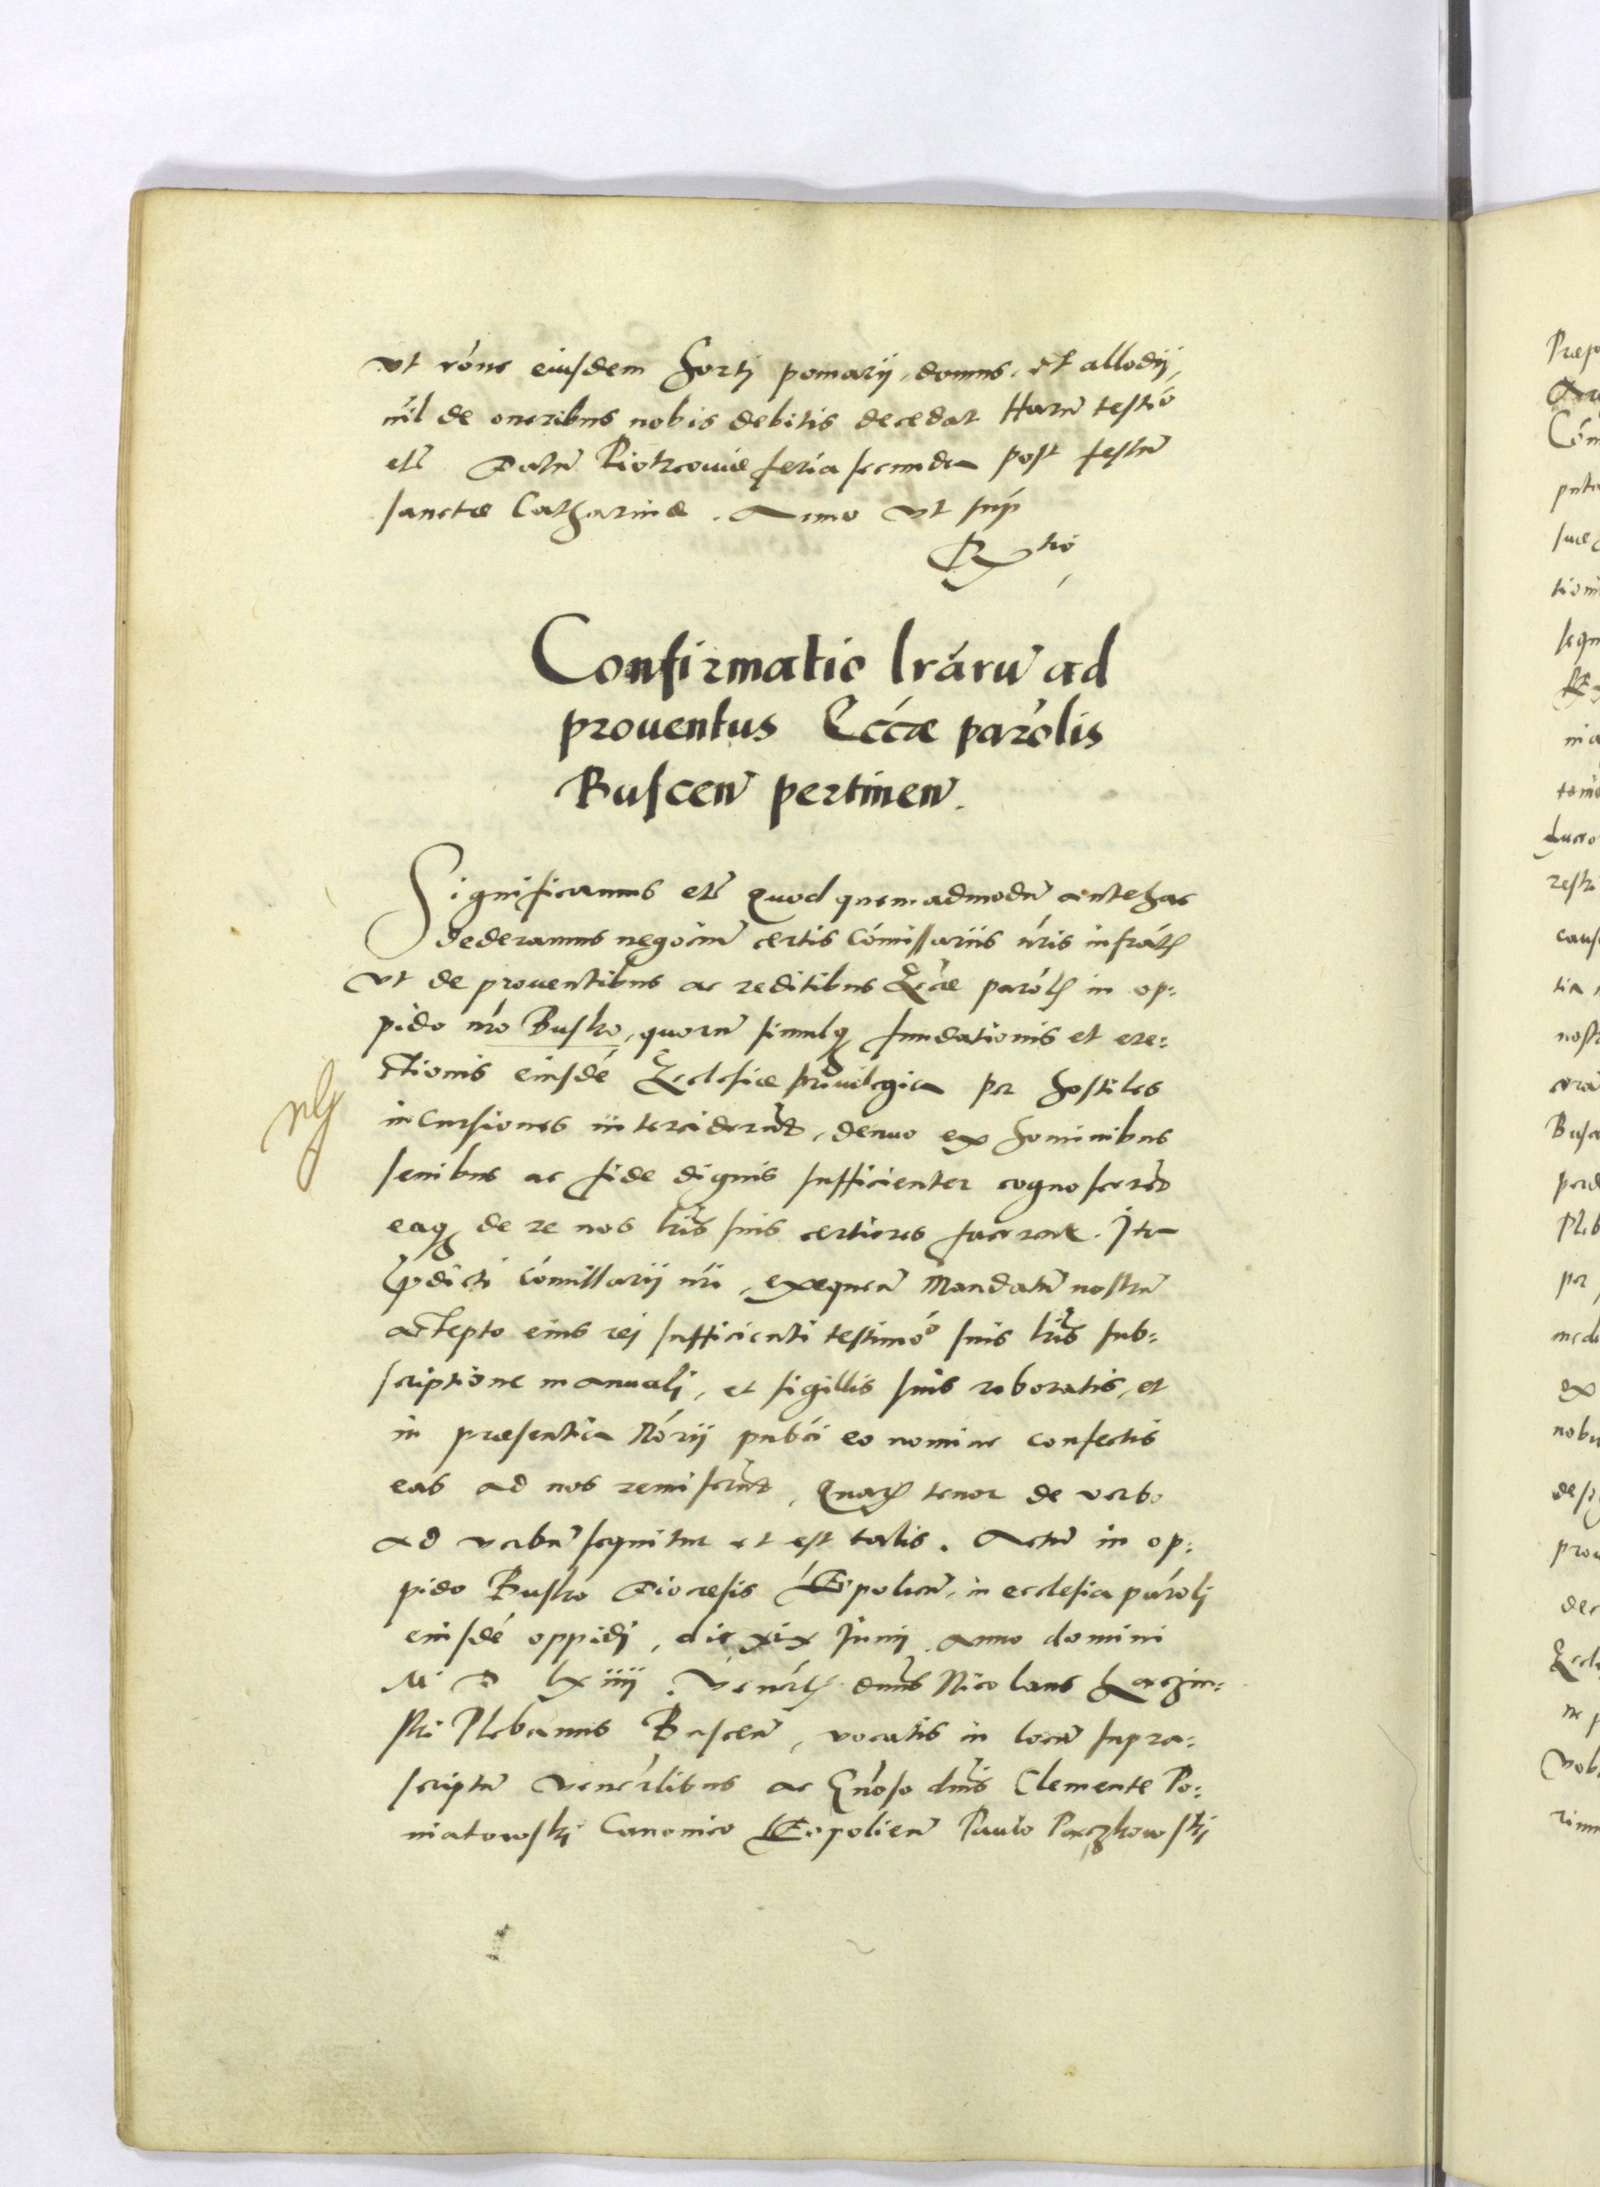 vt róne eiusdem horti pomarij, domus, et allodij,
nil de oneribus nobis debitis decedat Haru̅ testió
etc̅ Datu̅ Piotrcouiæ feria secunda post festu̅
sanctæ Catharinæ. Anno vt sup̅
Rtió
Confirmatio lráru̅ ad
prouentus Eccæ parólis
Buscen̅ pertinen̅.
Significamus etc̅ Quod quemadmodu̅ antehac
dederamus negociu̅ certis Cómissariis nr̅is infrát
vt de prouentibus ac reditibus Eccæ paról in op:
pido nr̅o Busko, quoru̅ simulq fundationis et ere:
ctionis eiusdé Ecclesiæ priuilegia per hostiles
incursiones interciderunt, denuo ex hominibus
senibus ac fide dignis sufficienter cognoscerent
eaq de re nos lris suis certiores facerent. Ita
p̅dicti Cómissarij nr̅i, exequen̅ Mandatu̅ nostru̅
accepto eius rei sufficienti testimóo suis lris sub:
scriptione manuali, et sigillis suis roboratis, et
in præsentia Nórij pubci eo nomine confectis
eas ad nos remiserunt, Quar tenor de verbo
ad verbu̅ sequitur et est talis. Actu̅ in op:
pido Busko Diocesis Leopolien̅, in ecclesia paróli
eiusdé oppidi, die xix Junij anno domini
M D lxiiij. Venerl dnus Nicolaus
ski Plebanus Buscen̅, vocatis in locu̅ supra:
scriptu̅ venerlibus ac Gnoso dnis Clemente Po:
niatowski Canonico Leopolien̅ Paulo Paczkowski